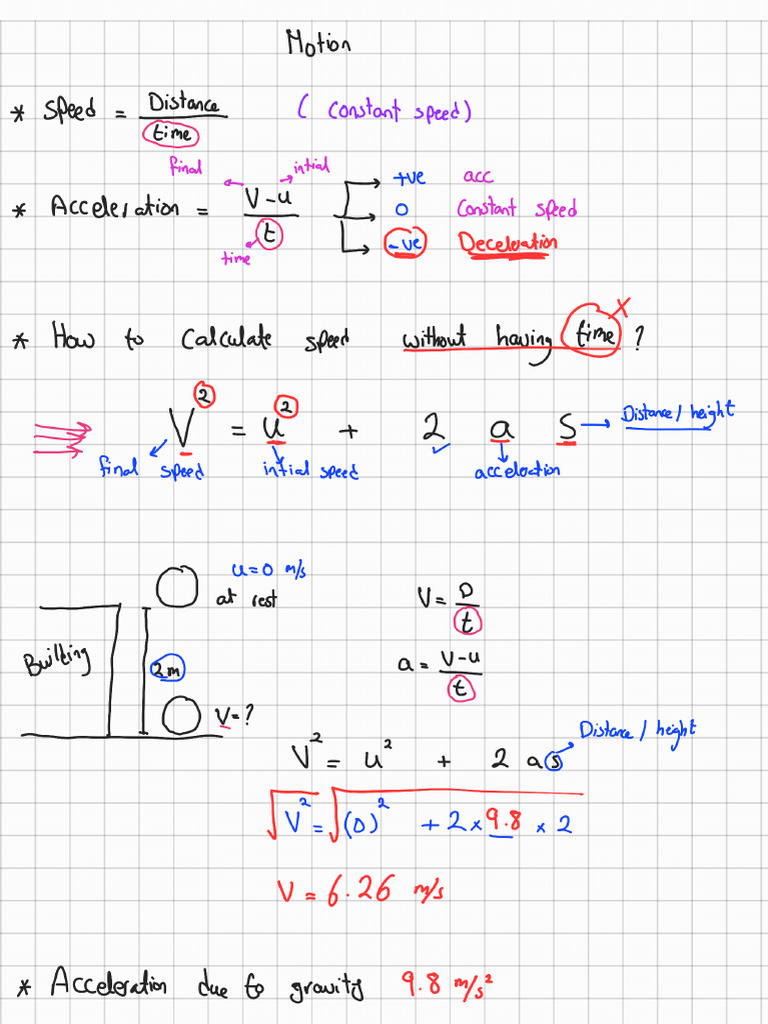 Motion
* Speed = Distance / time ( Constant speed)
final intial
* Acceleration = V-u / t
time
+ve acc
0 Constant speed
-ve Deceleration
* How to Calculate speed without having time ? X
V² = u² + 2 a s → Distance / height
final speed intial speed acceloration
u=0 m/s
at rest
Builting
2m
V=?
V = D / t
a = V-u / t
V² = u² + 2 a s Distance / height
√V² = √(0)² + 2 × 9.8 × 2
V = 6.26 m/s
* Acceleration due to gravity 9.8 m/s²